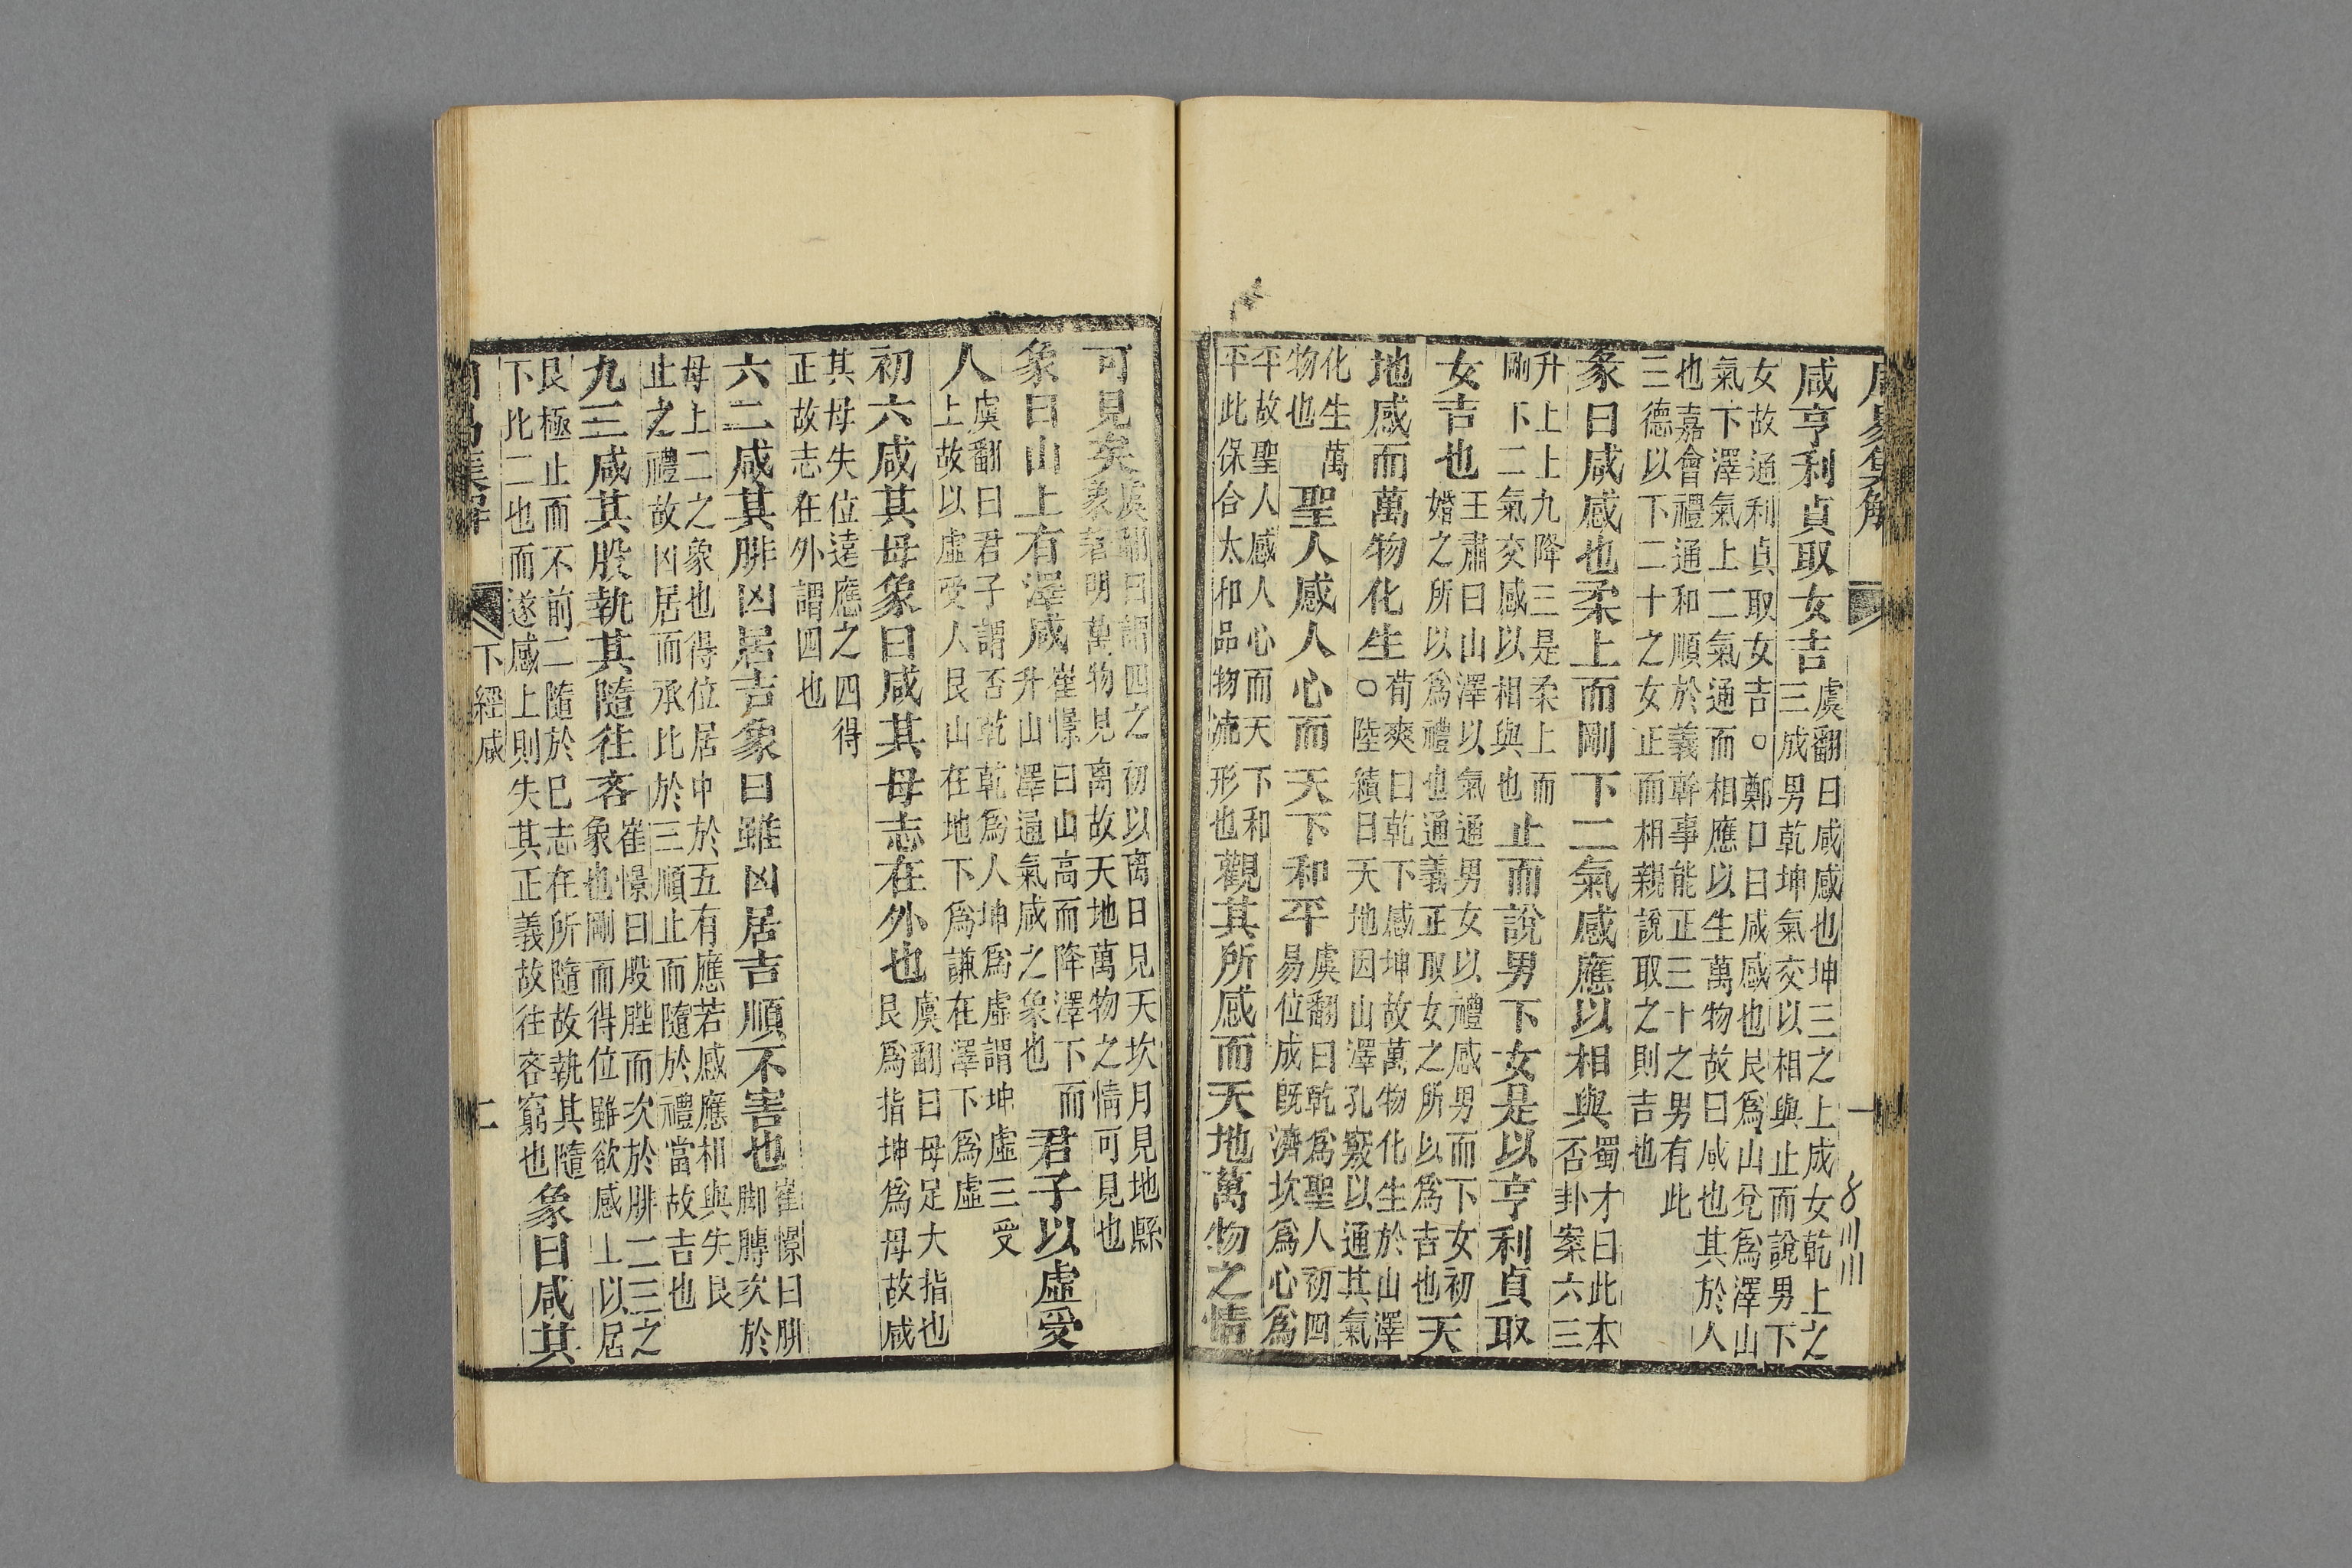 周易集解
咸亨利貞取女吉虞翻曰咸感也坤三之上成女乾上之
三成男乾坤氣交以相與止而說男下
女故通利貞取女吉○鄭曰咸感也艮爲山兌爲澤山
氣下澤氣上二氣通而相應以生萬物故曰咸也其於人
也嘉會禮通和順於義幹事能正三十之男有此
三德以下二十之女正而相親說取之則吉也
彖曰咸感也柔上而剛下二氣感應以相與蜀才曰此本
否卦案六三
升上上九降三是柔上而
剛下二氣交感以相與也止而說男下女是以亨利貞取
女吉也王肅曰山澤以氣通男女以禮感男而下女初
婚之所以爲禮也通義正取女之所以爲吉也天
地感而萬物化生荀爽曰乾下感坤故萬物化生於山澤
○陸績曰天地因山澤孔竅以通其氣
化生萬
物也聖人感人心而天下和平虞翻曰乾爲聖人初四
易位成旣濟坎爲心爲
平故聖人感人心而天下和
平此保合太和品物流形也觀其所感而天地萬物之情
可見矣虞翻曰謂四之初以离日見天坎月見地縣
象著明萬物見离故天地萬物之情可見也
象曰山上有澤咸崔憬曰山高而降澤下而
升山澤通氣咸之象也君子以虛受
人虞翻曰君子謂否乾乾爲人坤爲虛謂坤虛三受
上故以虛受人艮山在地下爲謙在澤下爲虛
初六咸其母象曰咸其母志在外也虞翻曰母足大指也
艮爲指坤爲母故咸
其母失位遠應之四得
正故志在外謂四也
六二咸其腓凶居吉象曰雖凶居吉順不害也崔憬曰腓
脚膊次於
母上二之象也得位居中於五有應若感應相與失艮
止之禮故凶居而承比於三順止而隨於禮當故吉也
九三咸其股執其隨往吝崔憬曰股䏶而次於腓二三之
象也剛而得位雖欲感上以居
艮極止而不前二隨於巳志在所隨故執其隨
下比二也而遂感上則失其正義故往吝窮也象曰咸其
下經咸
二